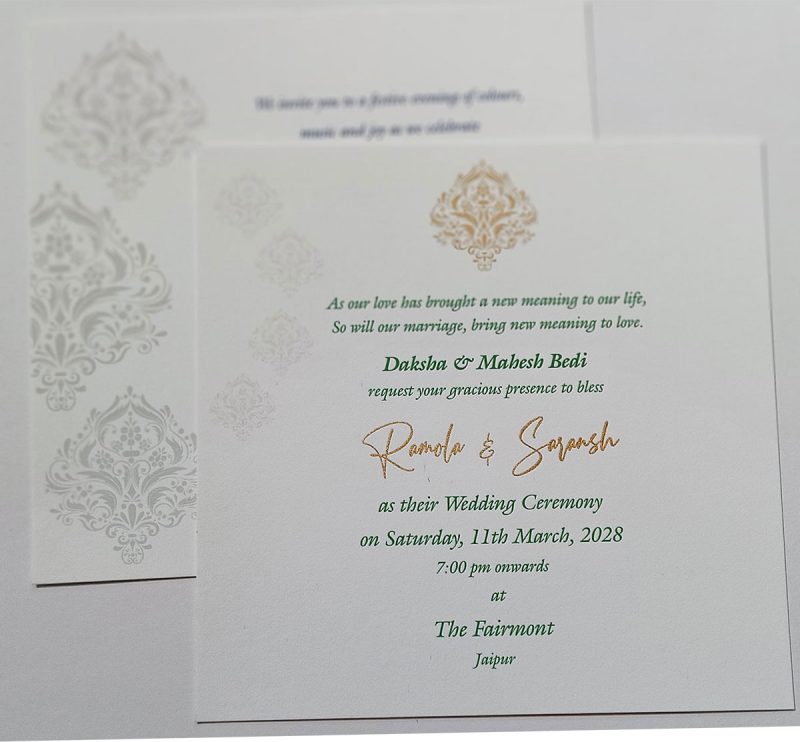 We invite you to a festive evening of colours,
music and joy as we celebrate
As our love has brought a new meaning to our life,
So will our marriage, bring new meaning to love.
Daksha & Mahesh Bedi
request your gracious presence to bless
Ramola & Saransh
as their Wedding Ceremony
on Saturday, 11th March, 2028
7:00 pm onwards
at
The Fairmont
Jaipur